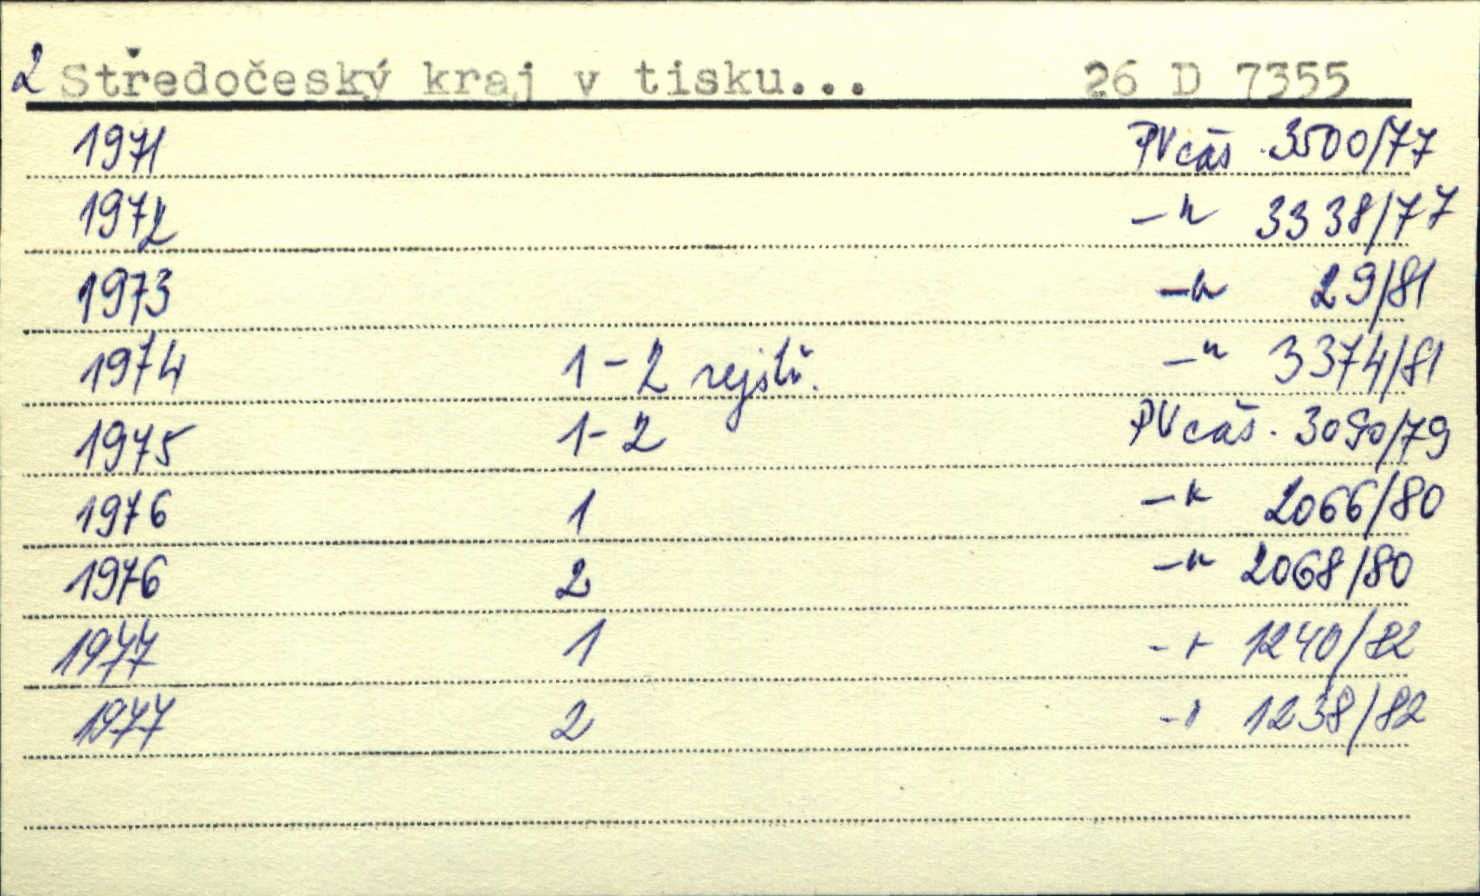 2 Středočeský kraj v tisku... 26 D 7355
1971 PV čás. 3500/77
1972 -"- 3338/77
1973 -"- 29/81
1974 1-2 rejstř. -"- 3374/81
1975 1-2 PV čás. 3090/79
1976 1 -"- 2066/80
1976 2 -"- 2068/80
1977 1 -"- 1240/82
1977 2 -"- 1238/82